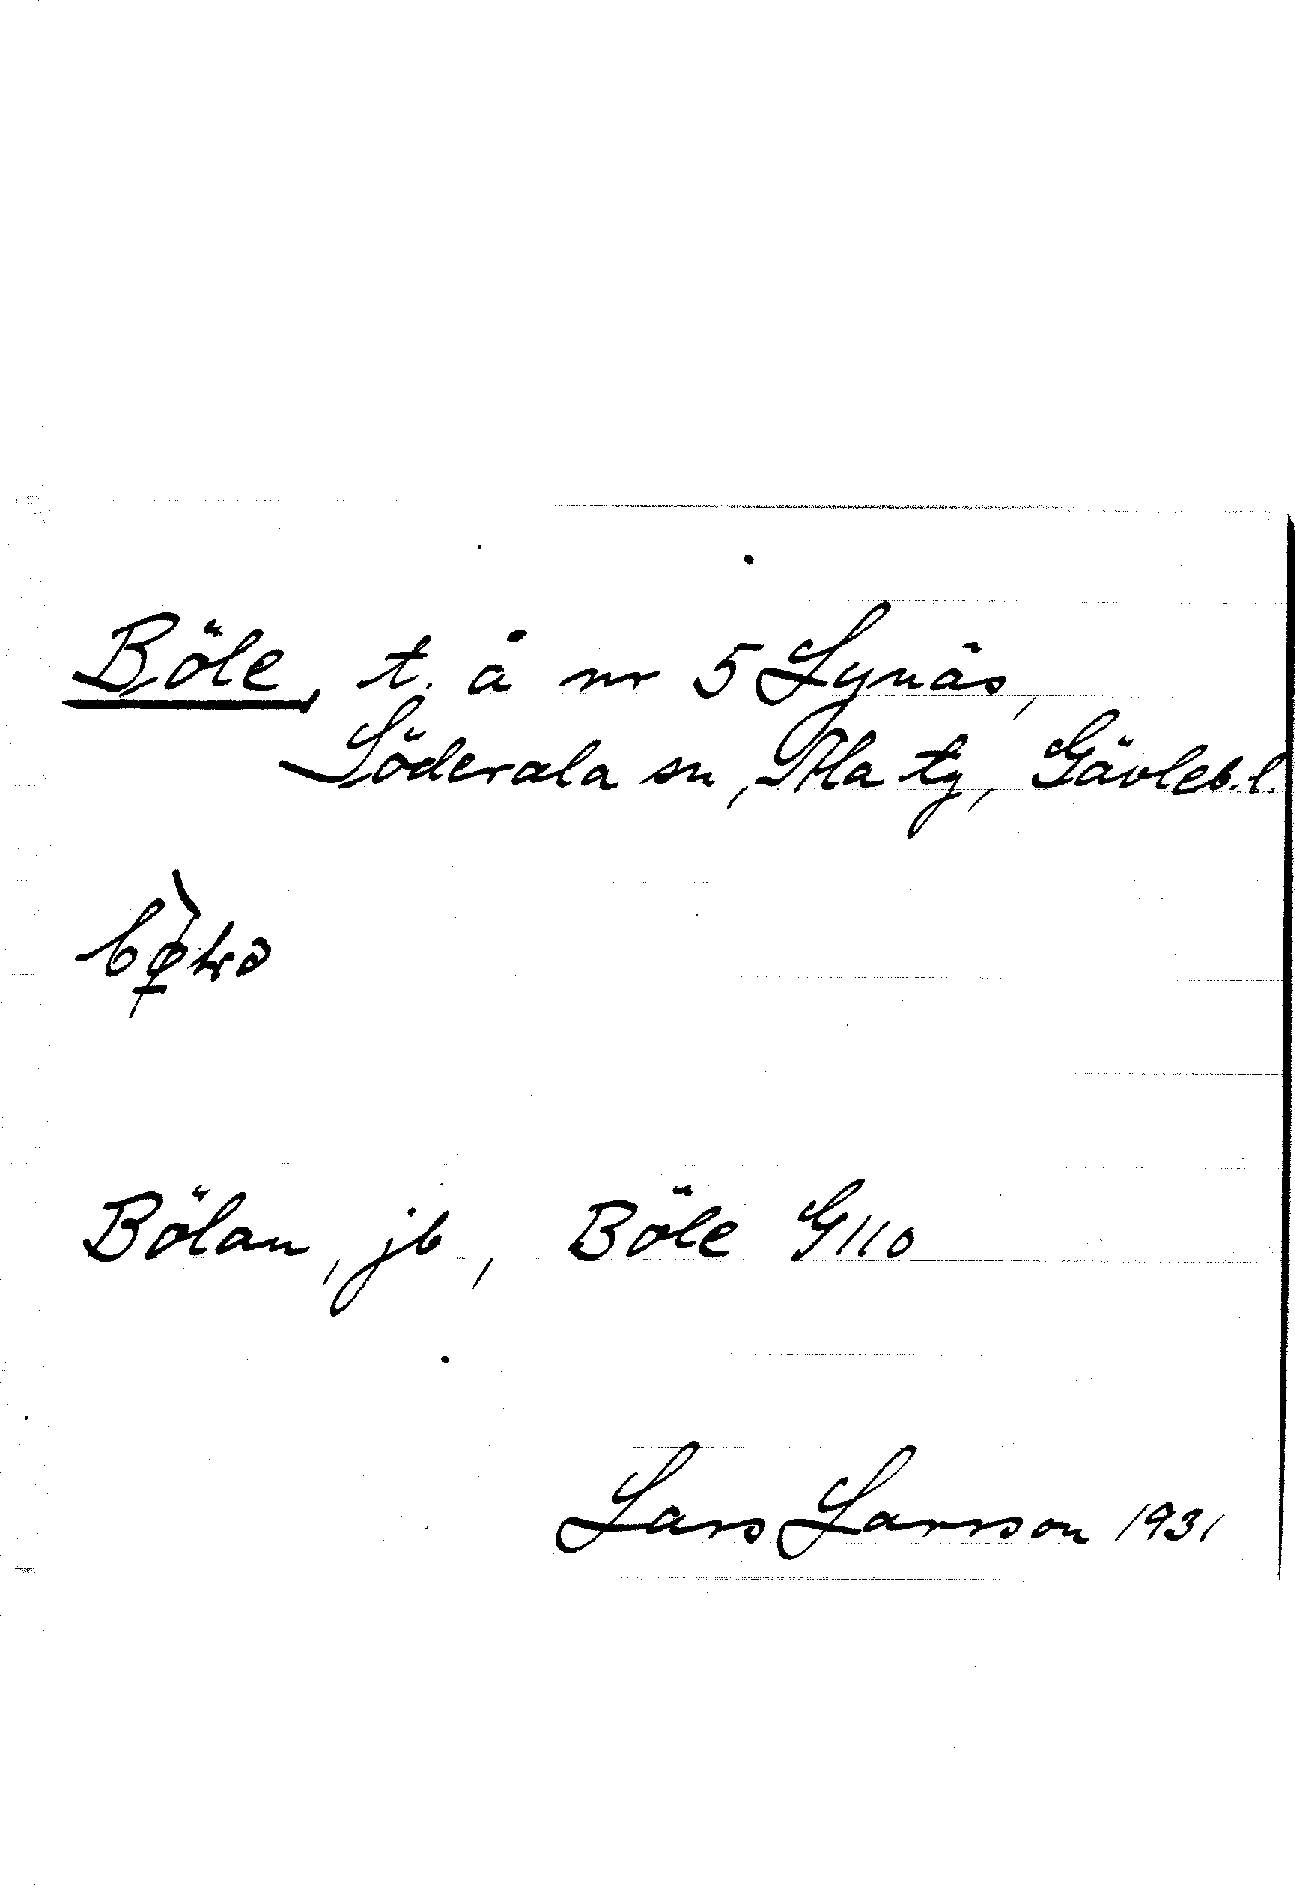 Böle, t. å nr 5 Lynäs,
Söderala sn, Ala tg, Gävleb.l.
Bölan, jb, Böle G110
Lars Larsson 1931